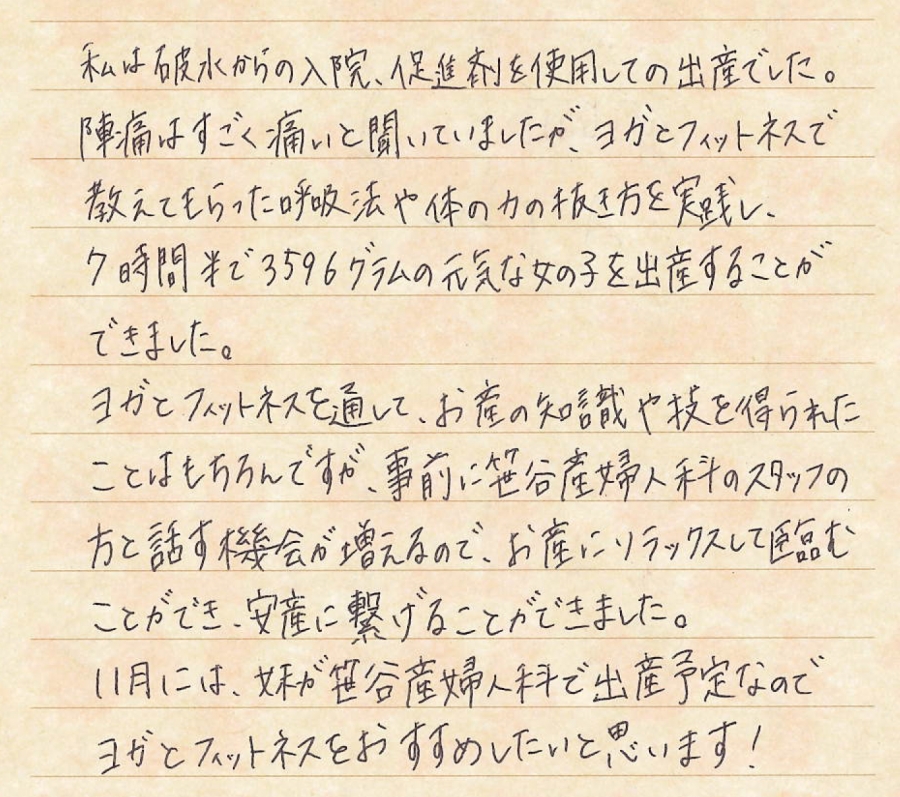 私は破水からの入院、促進剤を使用しての出産でした。
陣痛はすごく痛いと聞いていましたが、ヨガとフィットネスで
教えてもらった呼吸法や体の力の抜き方を実践し、
7時間半で3596グラムの元気な女の子を出産することが
できました。
ヨガとフィットネスを通して、お産の知識や技を得られた
ことはもちろんですが、事前に笹谷産婦人科のスタッフの
方と話す機会が増えるので、お産にリラックスして臨む
ことができ、安産に繋げることができました。
11月には、妹が笹谷産婦人科で出産予定なので
ヨガとフィットネスをおすすめしたいと思います!